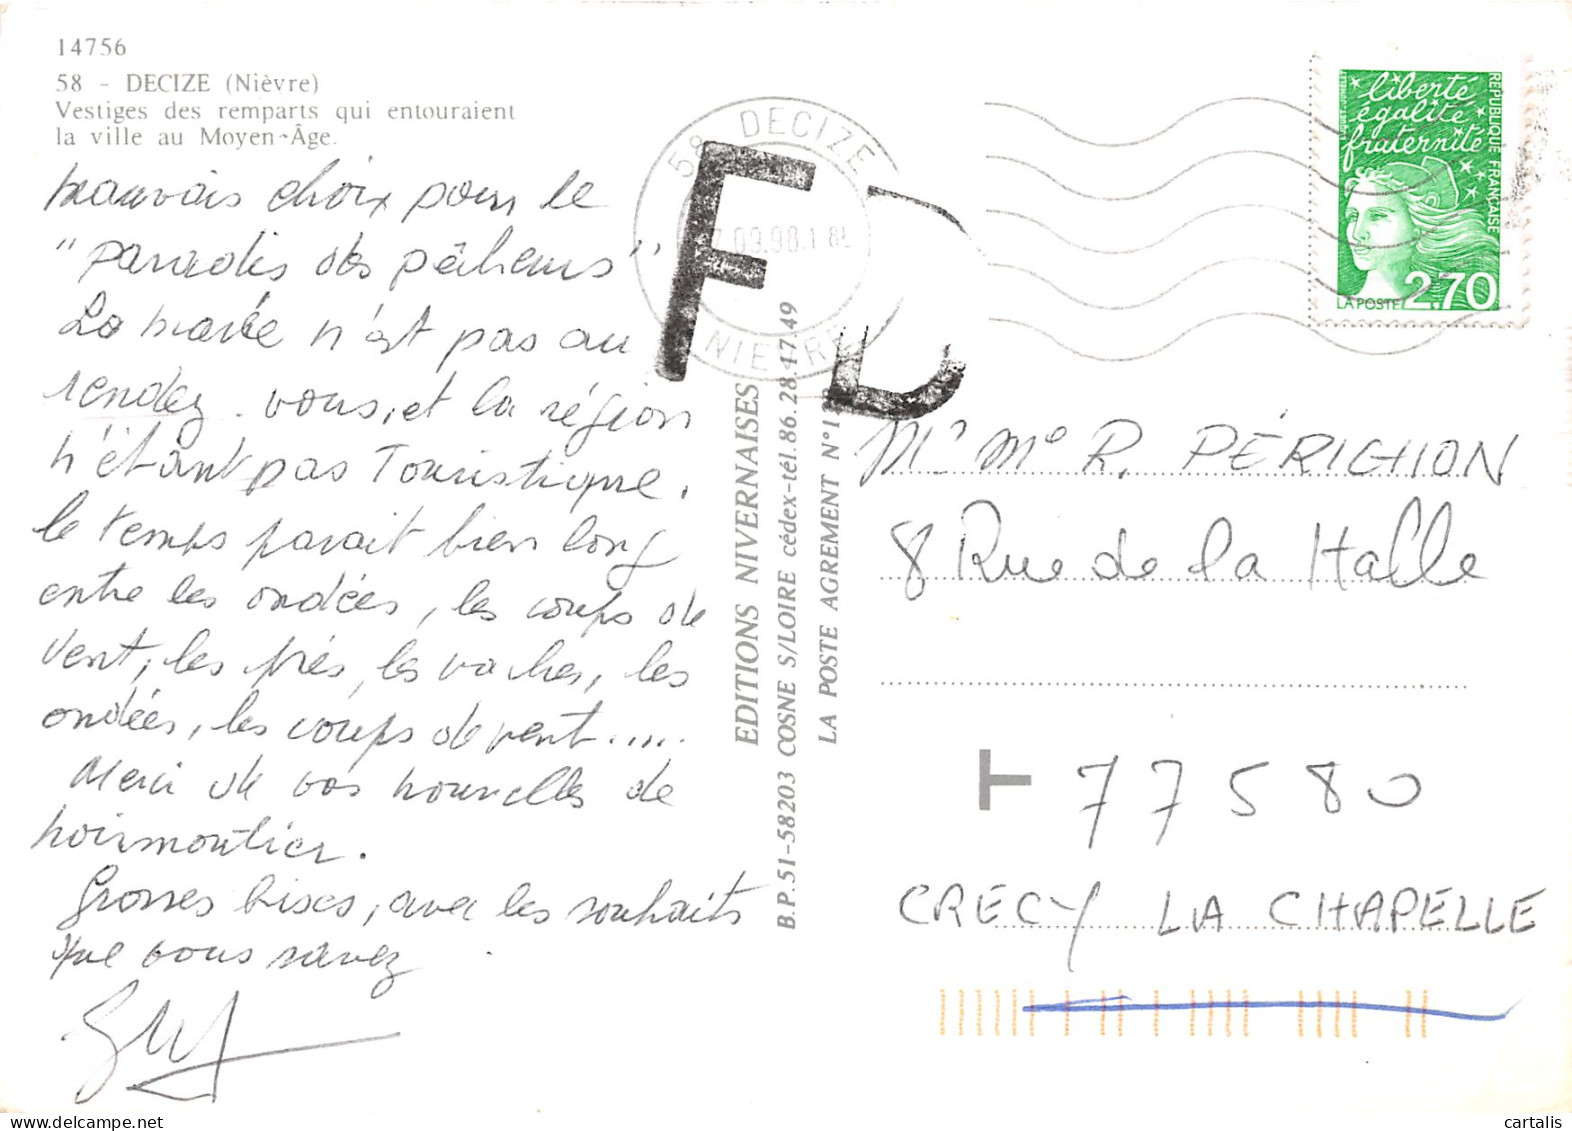 14756
58 - DECIZE (Nièvre)
Vestiges des remparts qui entouraient
la ville au Moyen-Âge.
mauvais choix pour le
"paradis des pêcheurs"
La marée n'est pas au
rendez-vous, et la région
n'étant pas Touristique,
le temps parait bien long
entre les ondées, les coups de
vent, les prés, les vaches, les
ondées, les coups de vent.....
Merci de vos nouvelles de
noirmoutier.
Grosses bises, avec les souhaits
que vous savez
Guy
EDITIONS NIVERNAISES
B.P. 51-58203 COSNE S/LOIRE cédex-tél. 86.28.47.49
LA POSTE AGREMENT N°
58 DECIZE
09.98.1
NIEVRE
F D
liberté
égalité
fraternité
REPUBLIQUE FRANÇAISE
LA POSTE 2,70
Mr Me R. PÉRICHON
8 Rue de la Halle
T 77580
CRECY LA CHAPELLE
cartalis